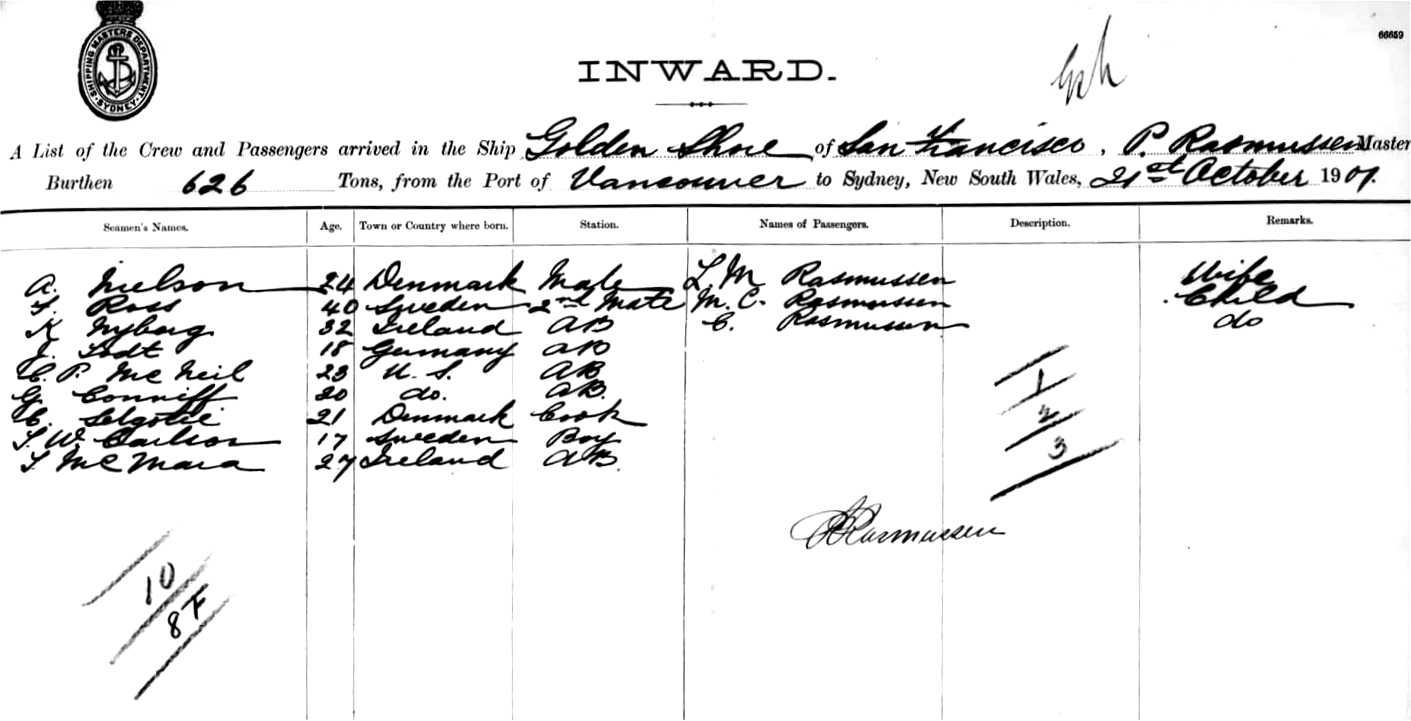 SHIPPING MASTERS DEPARTMENT SYDNEY
66659
INWARD.
A List of the Crew and Passengers arrived in the Ship Golden Shore of San Francisco, P. Rasmussen Master
Burthen 626 Tons, from the Port of Vancouver to Sydney, New South Wales, 21st October 1901.
Seamen's Names. Age. Town or Country where born. Station. Names of Passengers. Description. Remarks.
A. Nielson 24 Denmark Mate L M Rasmussen Wife
F. Ross 40 Sweden 2nd Mate M. C. Rasmussen Child
K Nyborg 32 Ireland AB C. Rasmussen do
J. Todt 18 Germany AB
C. P. McNeil 23 U. S. AB
G Conniff 20 do. AB.
C. 21 Denmark Cook
T. W. Carlson 17 Sweden Boy
T McMara 27 Ireland AB.
1
2
3
P Rasmussen
10
8F